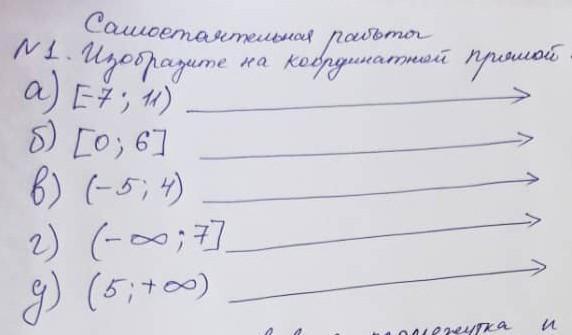 Самостоятельная работа
N1. Изобразите на координатной прямой
а) [-7; 11)
б) [0; 6]
в) (-5; 4)
г) (-∞; 7]
д) (5; +∞)
промежутка и